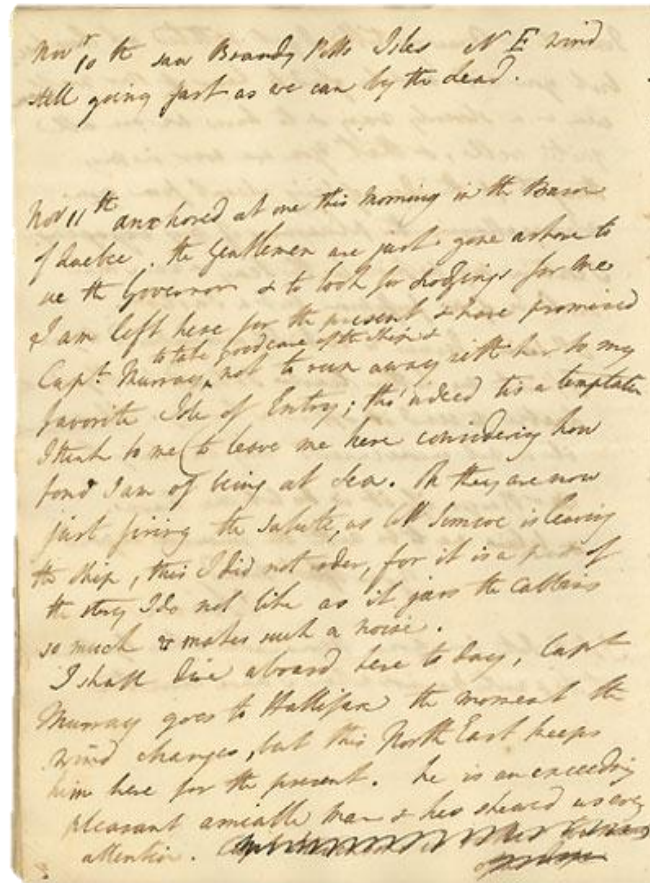 Novr 10th saw Brandy Potts Isles N E wind
still going fast as we can by the lead.
Nov 11th anchored at one this morning in the Bason
of Quebec. the Gentlemen are just gone ashore to
see the Governor & to look for Lodgings for me
& I am left here for the present & have promised
to take good care of the Ship &
Capt. Murray not to run away with her to my
favorite Isle of Entry; tho' indeed tis a temptation
I think to me (to leave me here considering how
fond I am of being at Sea. they are now
just firing the Salute, as Coll Simcoe is leaving
the ship, this I did not order, for it is a part of
the story I do not like as it jars the Cabbins
so much & makes such a noise.
I shall dine aboard here to day, Capt
Murray goes to Hallifax the moment the
wind changes, but this North East keeps
him here for the present. he is an exceeding
pleasant amiable man & has shewed us every
attention.